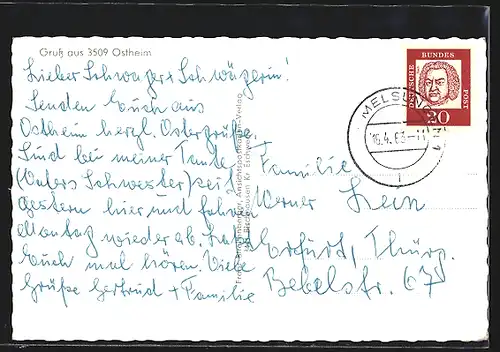 Gruß aus 3509 Ostheim
Lieber Schwager + Schwägerin!
Senden Euch aus
Ostheim herzl. Ostergrüße.
Sind bei meiner Tante
(Vaters Schwester) seit
gestern hier und fahren
Montag wieder ab. Laßt
Euch mal hören. Viele
Grüße Gertrud + Familie
DEUTSCHE BUNDES POST
20
MELSUNGEN
16.4.63-11
Familie
Werner
Erfurt, Thürg.
Bebelstr. 67